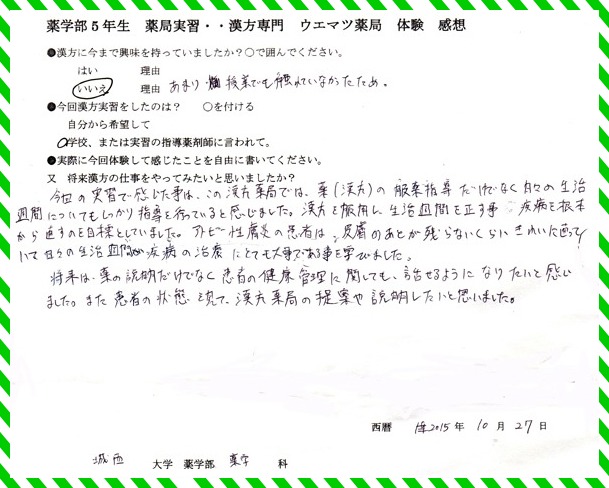 薬学部５年生　薬局実習・・漢方専門　ウエマツ薬局　体験　感想
●漢方に今まで興味を持っていましたか？○で囲んでください。
はい　理由
いいえ　理由　あまり　授業でも触れていなかったため。
●今回漢方実習をしたのは？　○を付ける
自分から希望して
○学校、または実習の指導薬剤師に言われて。
●実際に今回体験して感じたことを自由に書いてください。
又　将来漢方の仕事をやってみたいと思いましたか？
今回の実習で感じた事は、この漢方薬局では、薬（漢方）の服薬指導だけでなく日々の生活
週間についてもしっかり指導を行っていると感じました。漢方を服用し生活週間を正す事　疾病を根本
から直すのを目標としていました。アトピー性膚炎の患者は、皮膚のあとが残らないくらいきれいに
いて日々の生活週間が疾病の治療にとても大事である事を学びました。
将来は、薬の説明だけでなく患者の健康管理に関しても、話せるようになりたいと感じ
ました。また患者の状態を見て、漢方薬局の提案や説明したいと思いました。
西暦　2015年　10月　27日
城西　大学　薬学部　薬学　科